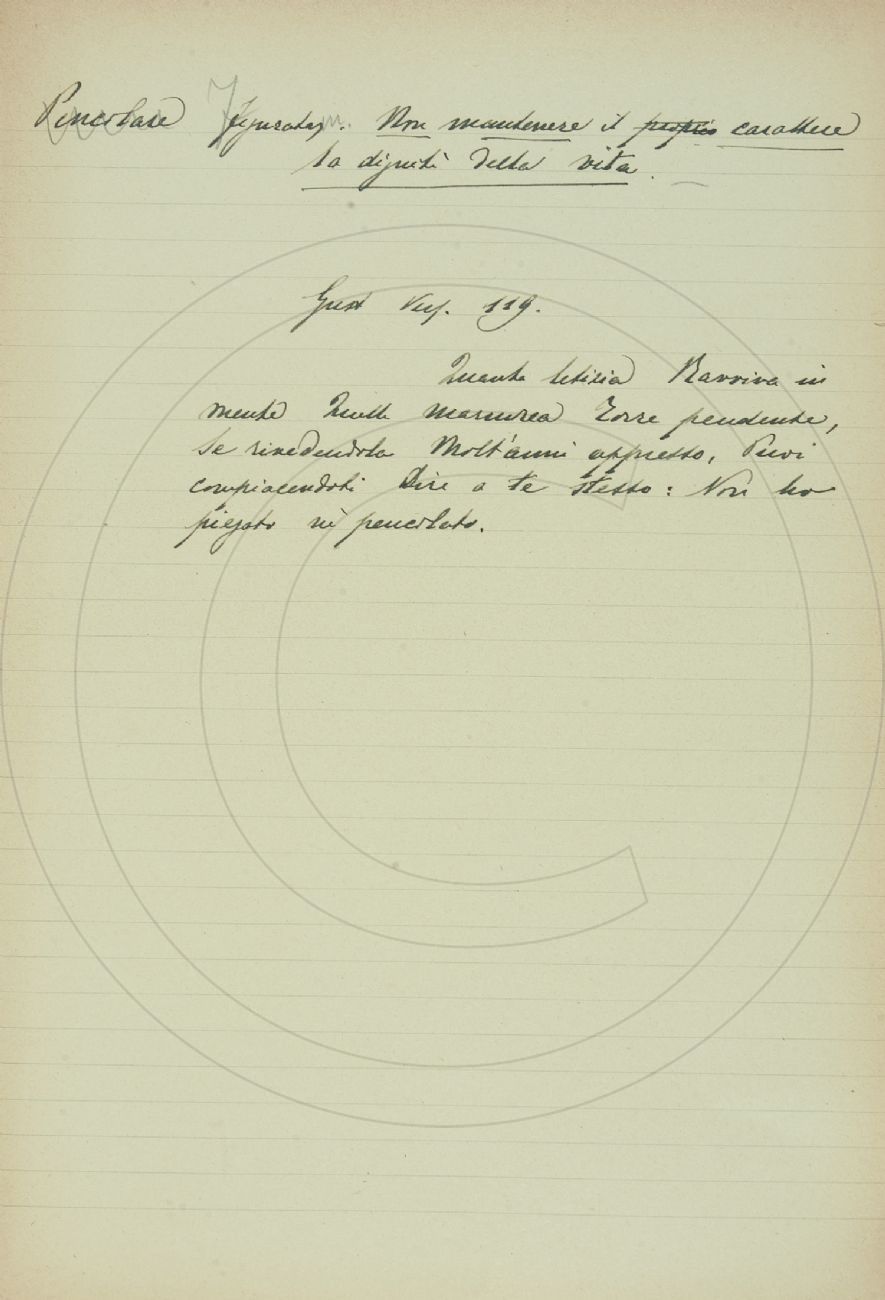 Pencolare Figuratam. Non mantenere il proprio carattere
la dignità della vita.
Giust Vers. 119.
Quanta letizia Ravviva in
mente Quella marmorea Torre pendente,
Se rivedendola Molt'anni appresso, Puoi
compiacendoti Dire a te stesso: Non ho
piegato nè pencolato.